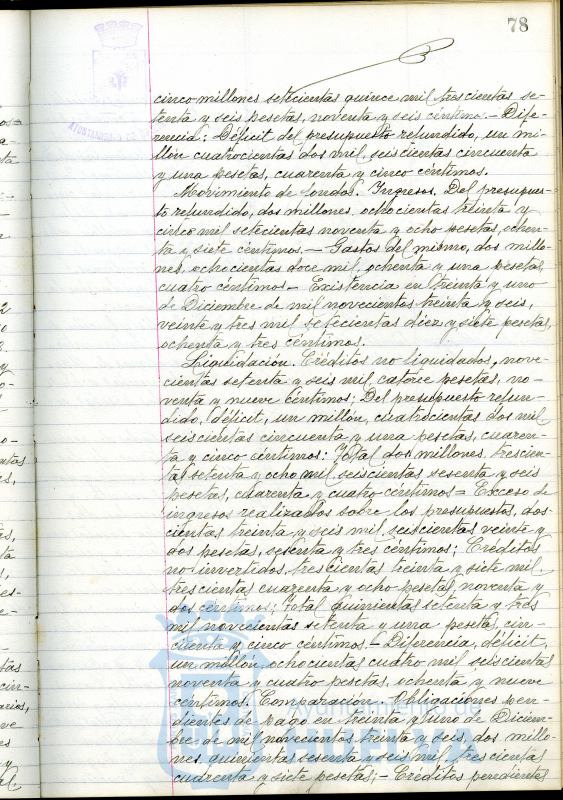 78
cinco millones setecientas quince mil trescientas se-
tenta y seis pesetas, noventa y seis céntimos.- Dife-
rencia: Déficit del presupuesto refundido, un mi-
llón cuatrocientas dos mil, seiscientas cincuenta
y una pesetas, cuarenta y cinco céntimos.
Movimiento de fondos. Ingresos. Del presupues-
to refundido, dos millones, ochocientas treinta y
cinco mil setecientas noventa y ocho pesetas, ochen-
ta y siete céntimos.- Gastos del mismo, dos millo-
nes, ochocientas doce mil, ochenta y una pesetas,
cuatro céntimos.- Existencia en treinta y uno
de Diciembre de mil novecientos treinta y seis,
veinte y tres mil setecientas diez y siete pesetas,
ochenta y tres céntimos.
Liquidación. Créditos no liquidados, nove-
cientas setenta y seis mil catorce pesetas, no-
venta y nueve céntimos; Del presupuesto refun-
dido, déficit, un millón, cuatrocientas dos mil
seiscientas cincuenta y una pesetas, cuaren-
ta y cinco céntimos: Total dos millones, trescien-
tas setenta y ocho mil, seiscientas sesenta y seis
pesetas, cuarenta y cuatro céntimos = Exceso de
ingresos realizados sobre los presupuestos, dos-
cientas treinta y seis mil, seiscientas veinte y
dos pesetas, sesenta y tres céntimos; Creditos
no invertidos, trescientas treinta y siete mil,
trescientas cuarenta y ocho pesetas noventa y
dos céntimos; Total quinientas setenta y tres
mil novecientas setenta y una pesetas, cin-
cuenta y cinco céntimos.- Diferencia, déficit,
un millón, ochocientas cuatro mil seiscientas
noventa y cuatro pesetas, ochenta y nueve
céntimos. Comparación.- Obligaciones pen-
dientes de pago en treinta y uno de Diciem-
bre de mil novecientos treinta y seis, dos millo-
nes, quinientas sesenta y seis mil, trescientas
cuarenta y siete pesetas;- Creditos pendientes
Ayuntamiento de
HUELVA